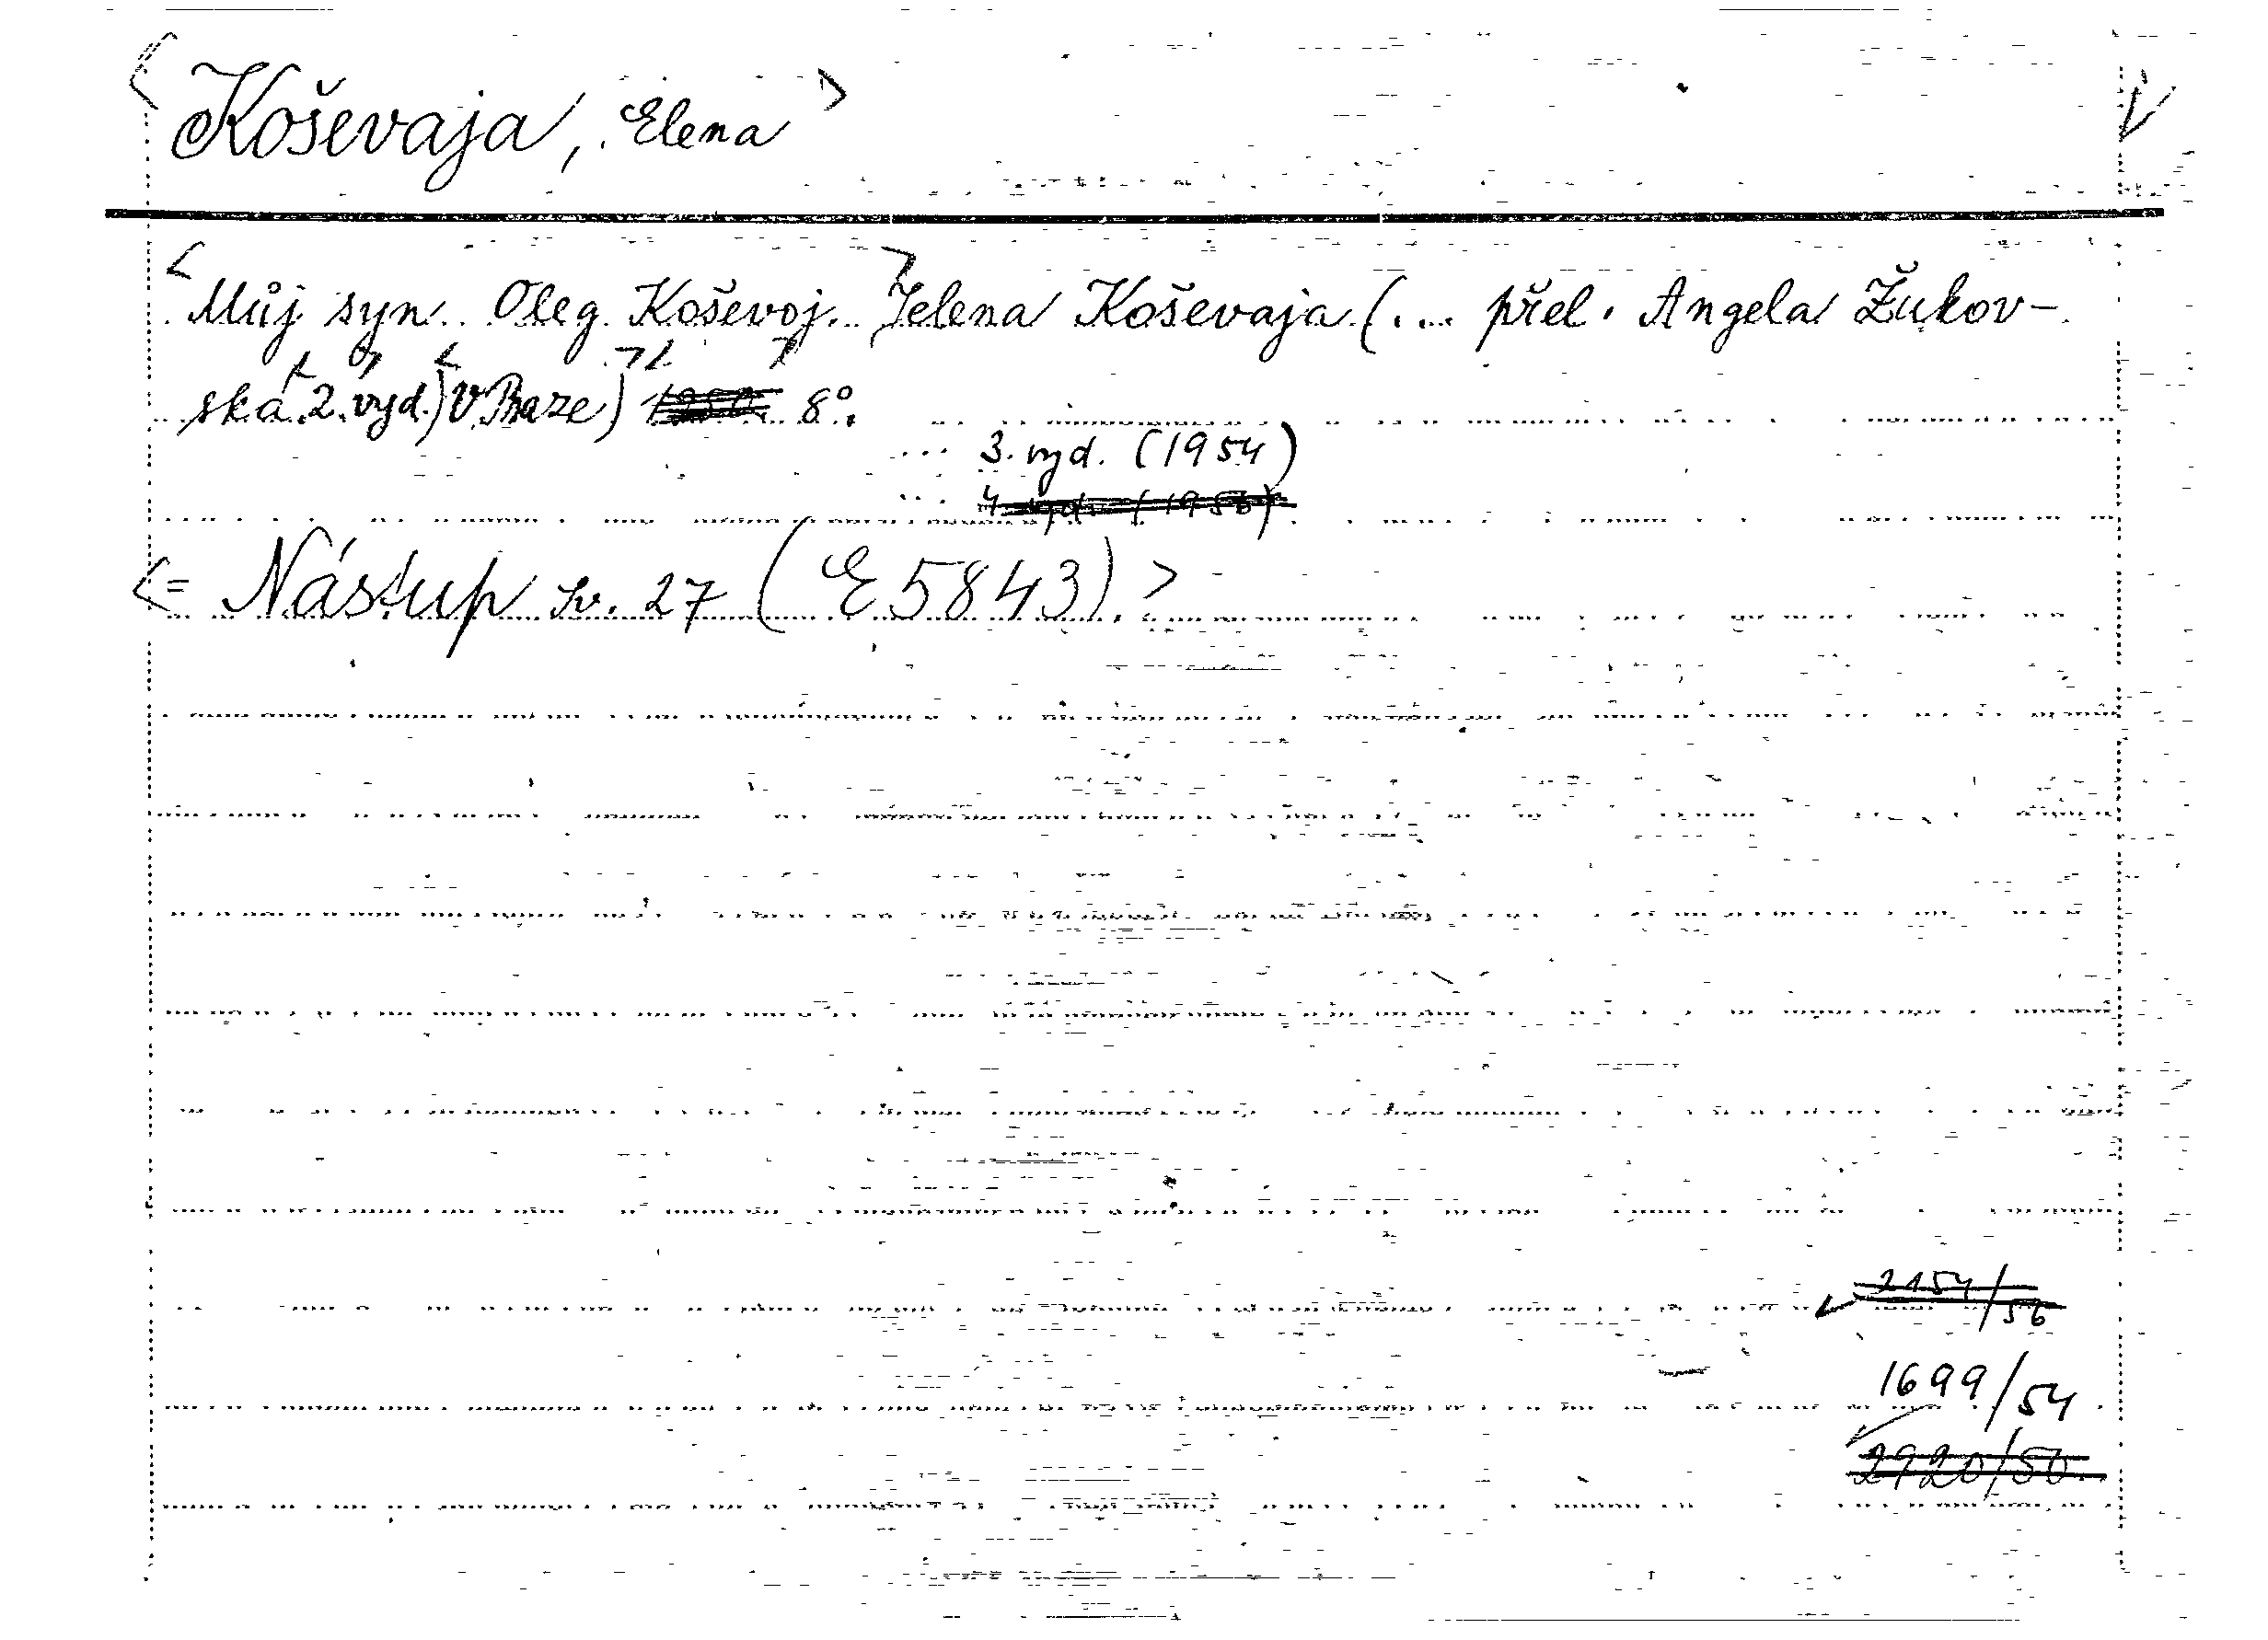 <Koševaja, Elena>
<Můj syn Oleg Koševoj.> Jelena Koševaja (... přel. Angela Žukov-
ská. 2. vyd.) V Praze) 1950. 8°.
... 3. vyd. (1954)
... 4. vyd. (1956)
<= Nástup sv. 27 (E 5843).>
2154/56
1699/54
2920/50.